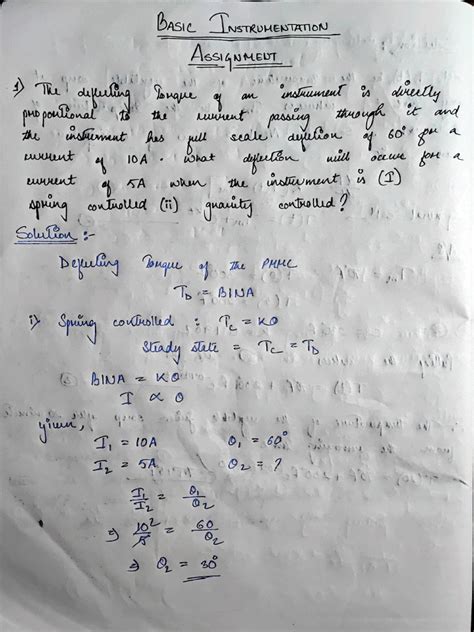 BASIC INSTRUMENTATION
ASSIGNMENT
1) The deflecting Torque of an instrument is directly
proportional to the current passing through it and
the instrument has full scale deflection of 60° for a
current of 10A. What deflection will occur for a
current of 5A when the instrument is (I)
spring controlled (ii) gravity controlled?
Solution :-
Deflecting Torque of the PMMC
T_D = BINA
i) Spring controlled : T_C = Kθ
Steady state = T_C = T_D
BINA = Kθ
I ∝ θ
given,
I₁ = 10A θ₁ = 60°
I₂ = 5A θ₂ = ?
I₁/I₂ = θ₁/θ₂
⇒ 10²/5 = 60/θ₂
⇒ θ₂ = 30°